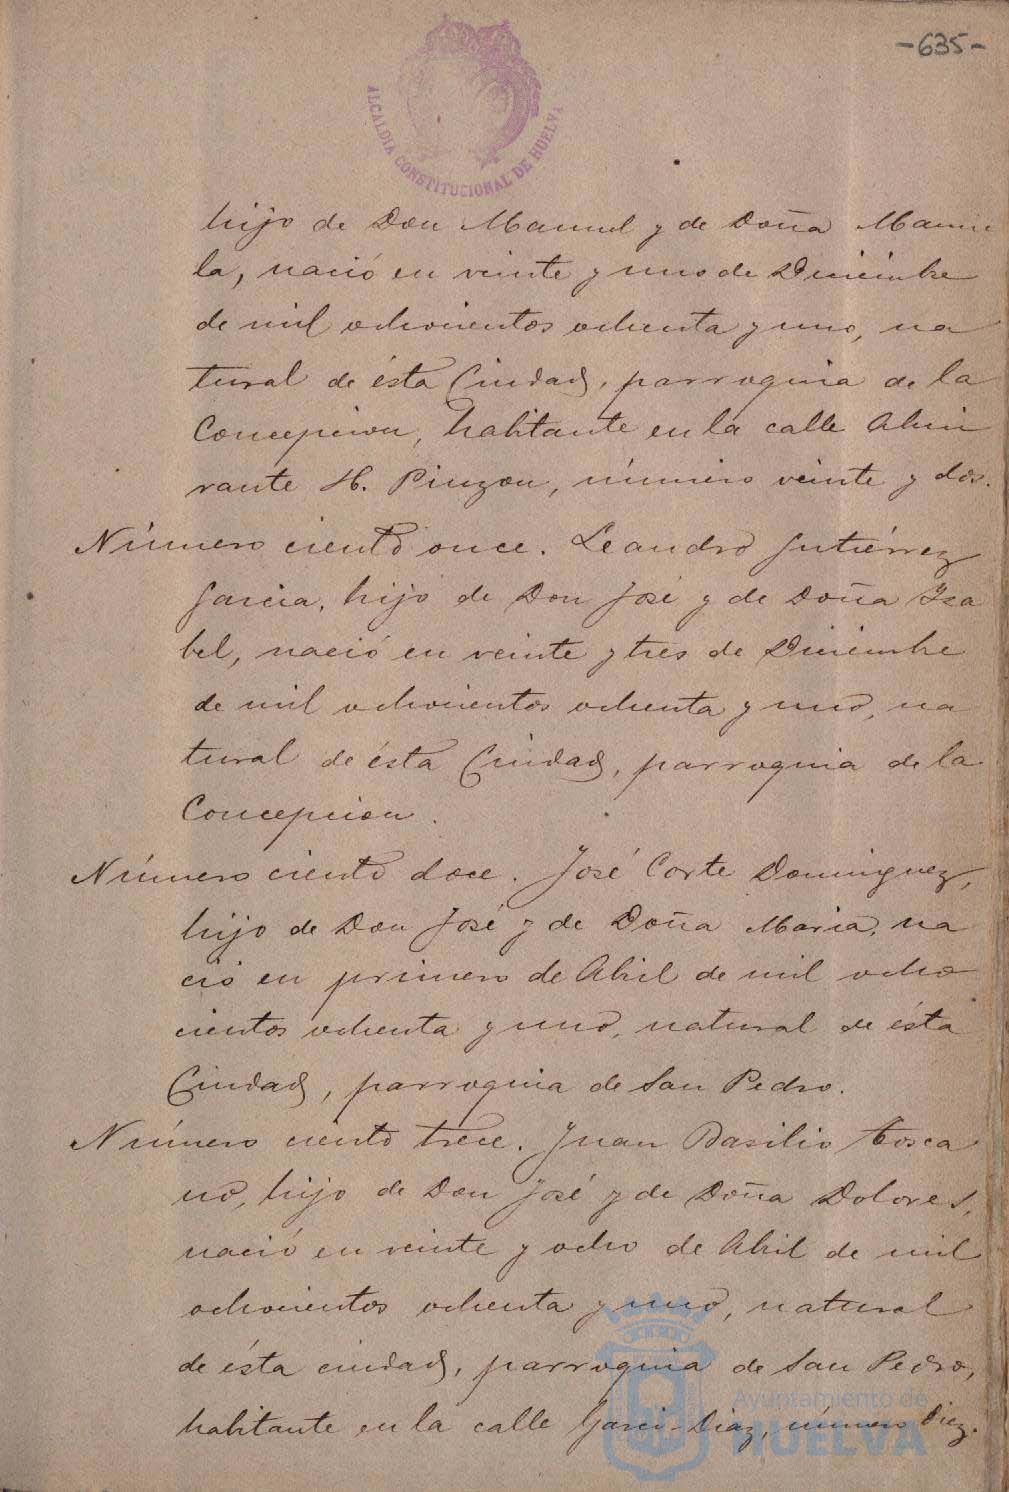 -635-
ALCALDIA CONSTITUCIONAL DE HUELVA
hijo de Don Manuel y de Doña Manue
la, nació en veinte y uno de Diciembre
de mil ochocientos ochenta y uno, na
tural de ésta Ciudad, parroquia de la
Concepcion, habitante en la calle Almi
rante H. Pinzon, número veinte y dos.
Número ciento once. Leandro Gutiérrez
Garcia, hijo de Don José y de Doña Isa
bel, nació en veinte y tres de Diciembre
de mil ochocientos ochenta y uno, na
tural de ésta Ciudad, parroquia de la
Concepcion.
Número ciento doce. José Corte Dominguez,
hijo de Don José y de Doña Maria, na
ció en primero de Abril de mil ocho
cientos ochenta y uno, natural de ésta
Ciudad, parroquia de San Pedro.
Número ciento trece. Juan Basilio Tosca
no, hijo de Don José y de Doña Dolores,
nació en veinte y ocho de Abril de mil
ochocientos ochenta y uno, natural
de ésta ciudad, parroquia de San Pedro,
habitante en la calle Garci-Diaz, número diez.
Ayuntamiento de
HUELVA